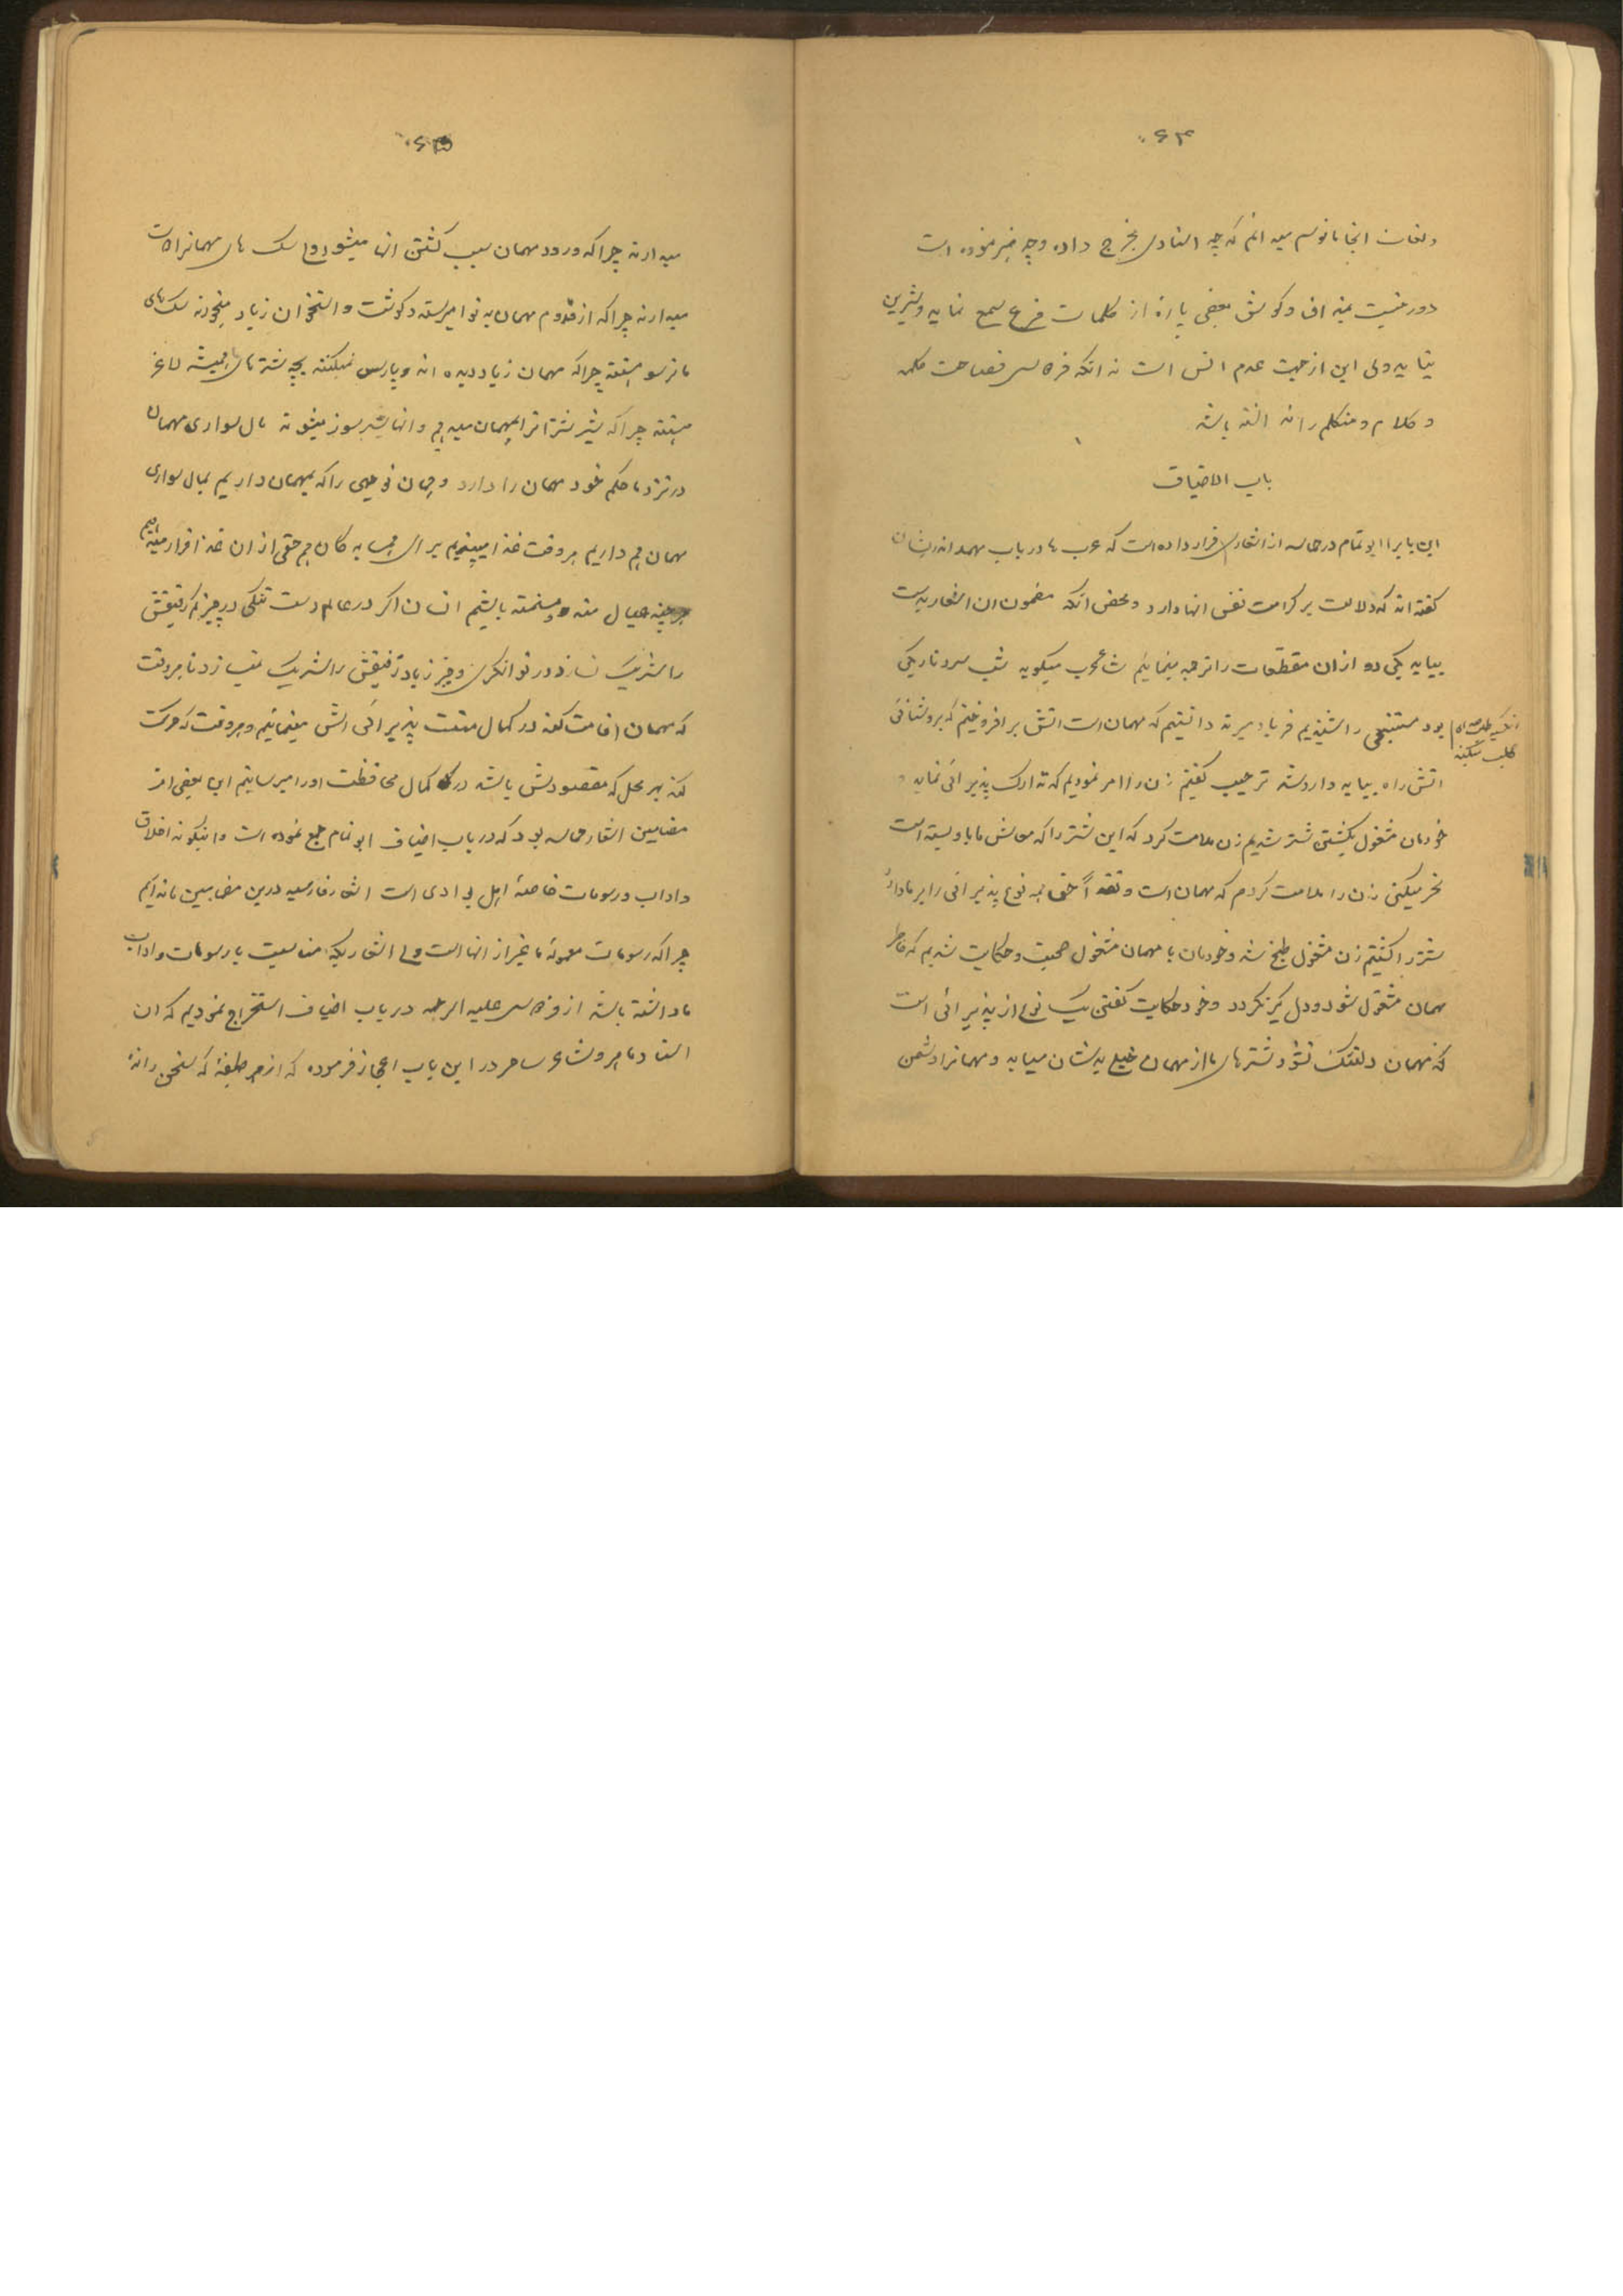 ۰۶۴
ولغات انجا مانوسم میدانم که چه استادی بخرج داده و چه هنر نموده است
دور نیست بمذاق و کوش بعضی پارهٔ از کلمات قرع سمع نماید و شیرین
نیاید ولی این از جهت عدم انس است نه انکه فردوسی فصاحت کلمه
و کلام و متکلم را نداشته باشد
باب الاضیاف
این باب را ابو تمام در حماسه از اشعاری قرار داده است که عرب ها در باب مهمانداریشان
کفته اند که دلالت بر کرامت نفس انها دارد و محض انکه مضمون ان اشعار بدست
بیاید یکی دو از ان مقطعات را ترجمه مینمایم شاعر عرب میکوید شب سرد تاریکی
بود مستنبحی را شنیدیم فریاد میزند دانستیم که مهمان است اتش بر افروختیم که بروشنائی
انکسیکه صدای
کلب میکند
اتش راه بیابد وارد شد ترحیب کفتیم زن را امر نمودیم که تدارک پذیرائی نماید و
خودمان مشغول بکشتن شتر شدیم زن ملامت کرد که این شتر را که معاش ما باو بسته است
نحر میکنی زن را ملامت کردم که مهمان است و نقداً حق همه نوع پذیرائی را بر ما دارد
شتر را کشتیم زن مشغول طبخ شد و خودمان با مهمان مشغول صحبت و حکایت شدیم که خاطر
مهمان مشغول شود و دل کیر نکردد و خود حکایت کفتن یک نوع از پذیرائی است
که مهمان دلتنک نشود شترهای ما از مهمان خیلی بدشان میاید و مهمانرا دشمن
۰۶۵
میدارند چرا که ورود مهمان سبب کشتن انها میشود و سک های ما مهمانرا دوست
میدارند چرا که از قدوم مهمان به نوا میرسند و کوشت و استخوان زیاد میخورند سک های
ما ترسو هستند چرا که مهمان زیاد دیده اند و پارس نمیکنند بچه شترهای ما همیشه لاغر
هستند چرا که شیر شترانرا بمهمان میدهیم و انها بی شیر میشوند مال سواری مهمان
در نزد ما حکم خود مهمان را دارد و همان توجهی را که بمهمان داریم بمال سواری
مهمان هم داریم هر وقت غذا میپزیم برای همسایه کان هم حقی از ان غذا قرار میدهیم
هر چند عیال مند و مستمند باشیم انسان اکر در عالم دست تنکی در چیز کم رفیقش
را شریک نسازد در توانکری و چیز زیاد رفیقش را شریک نمیسازد تا هر وقت
که مهمان اقامت کند در کمال منت پذیرائی اش مینمائیم و هر وقت که حرکت
کند بهر محل که مقصودش باشد در کمال محافظت اورا میرسانیم این بعضی از
مضامین اشعار حماسه بود که در باب اضیاف ابو تمام جمع نموده است و اینکونه اخلاق
و اداب و رسومات خاصهٔ اهل بوادی است اشعار فارسیه درین مضامین نداریم
چرا که رسومات معموله ما غیر از انها است ولی اشعاریکه مناسبت با رسومات و اداب
ما داشته باشد از فردوسی علیه الرحمه در باب اضیاف استخراج نمودیم که ان
استاد ماهر و شاعر ساحر در این باب اعجاز فرموده که از هر طبقهٔ که سخن رانده